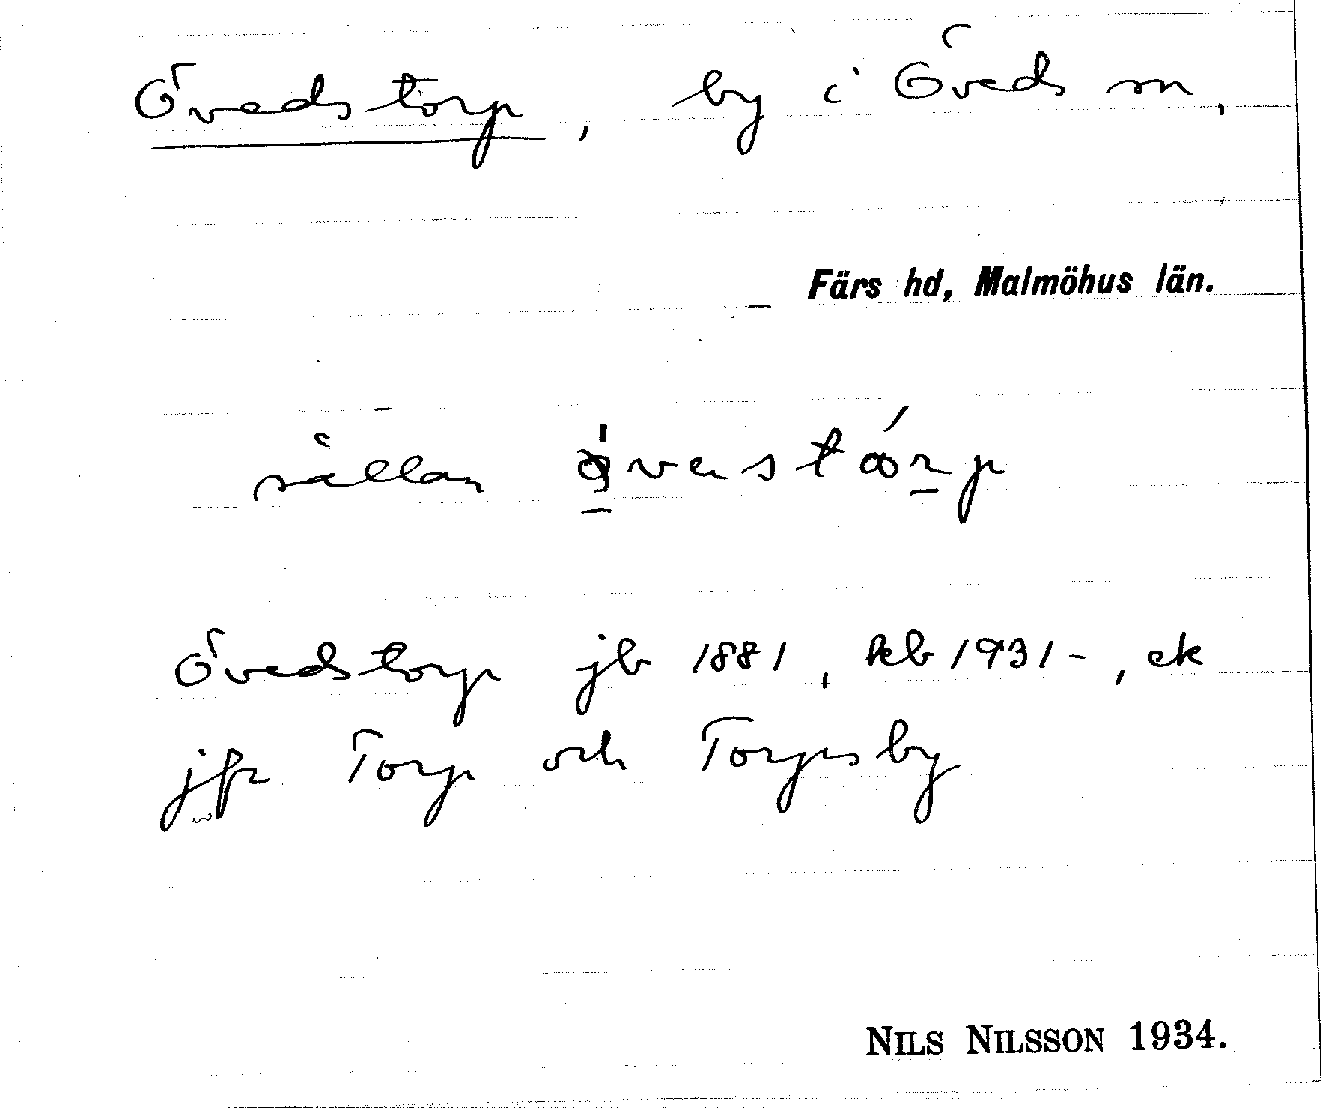 Övedstorp, by i Öveds sn,
Färs hd, Malmöhus län.
sällan
Övedstorp jb 1881, kb 1931-, ek
jfr Torp och Torpsby
NILS NILSSON 1934.